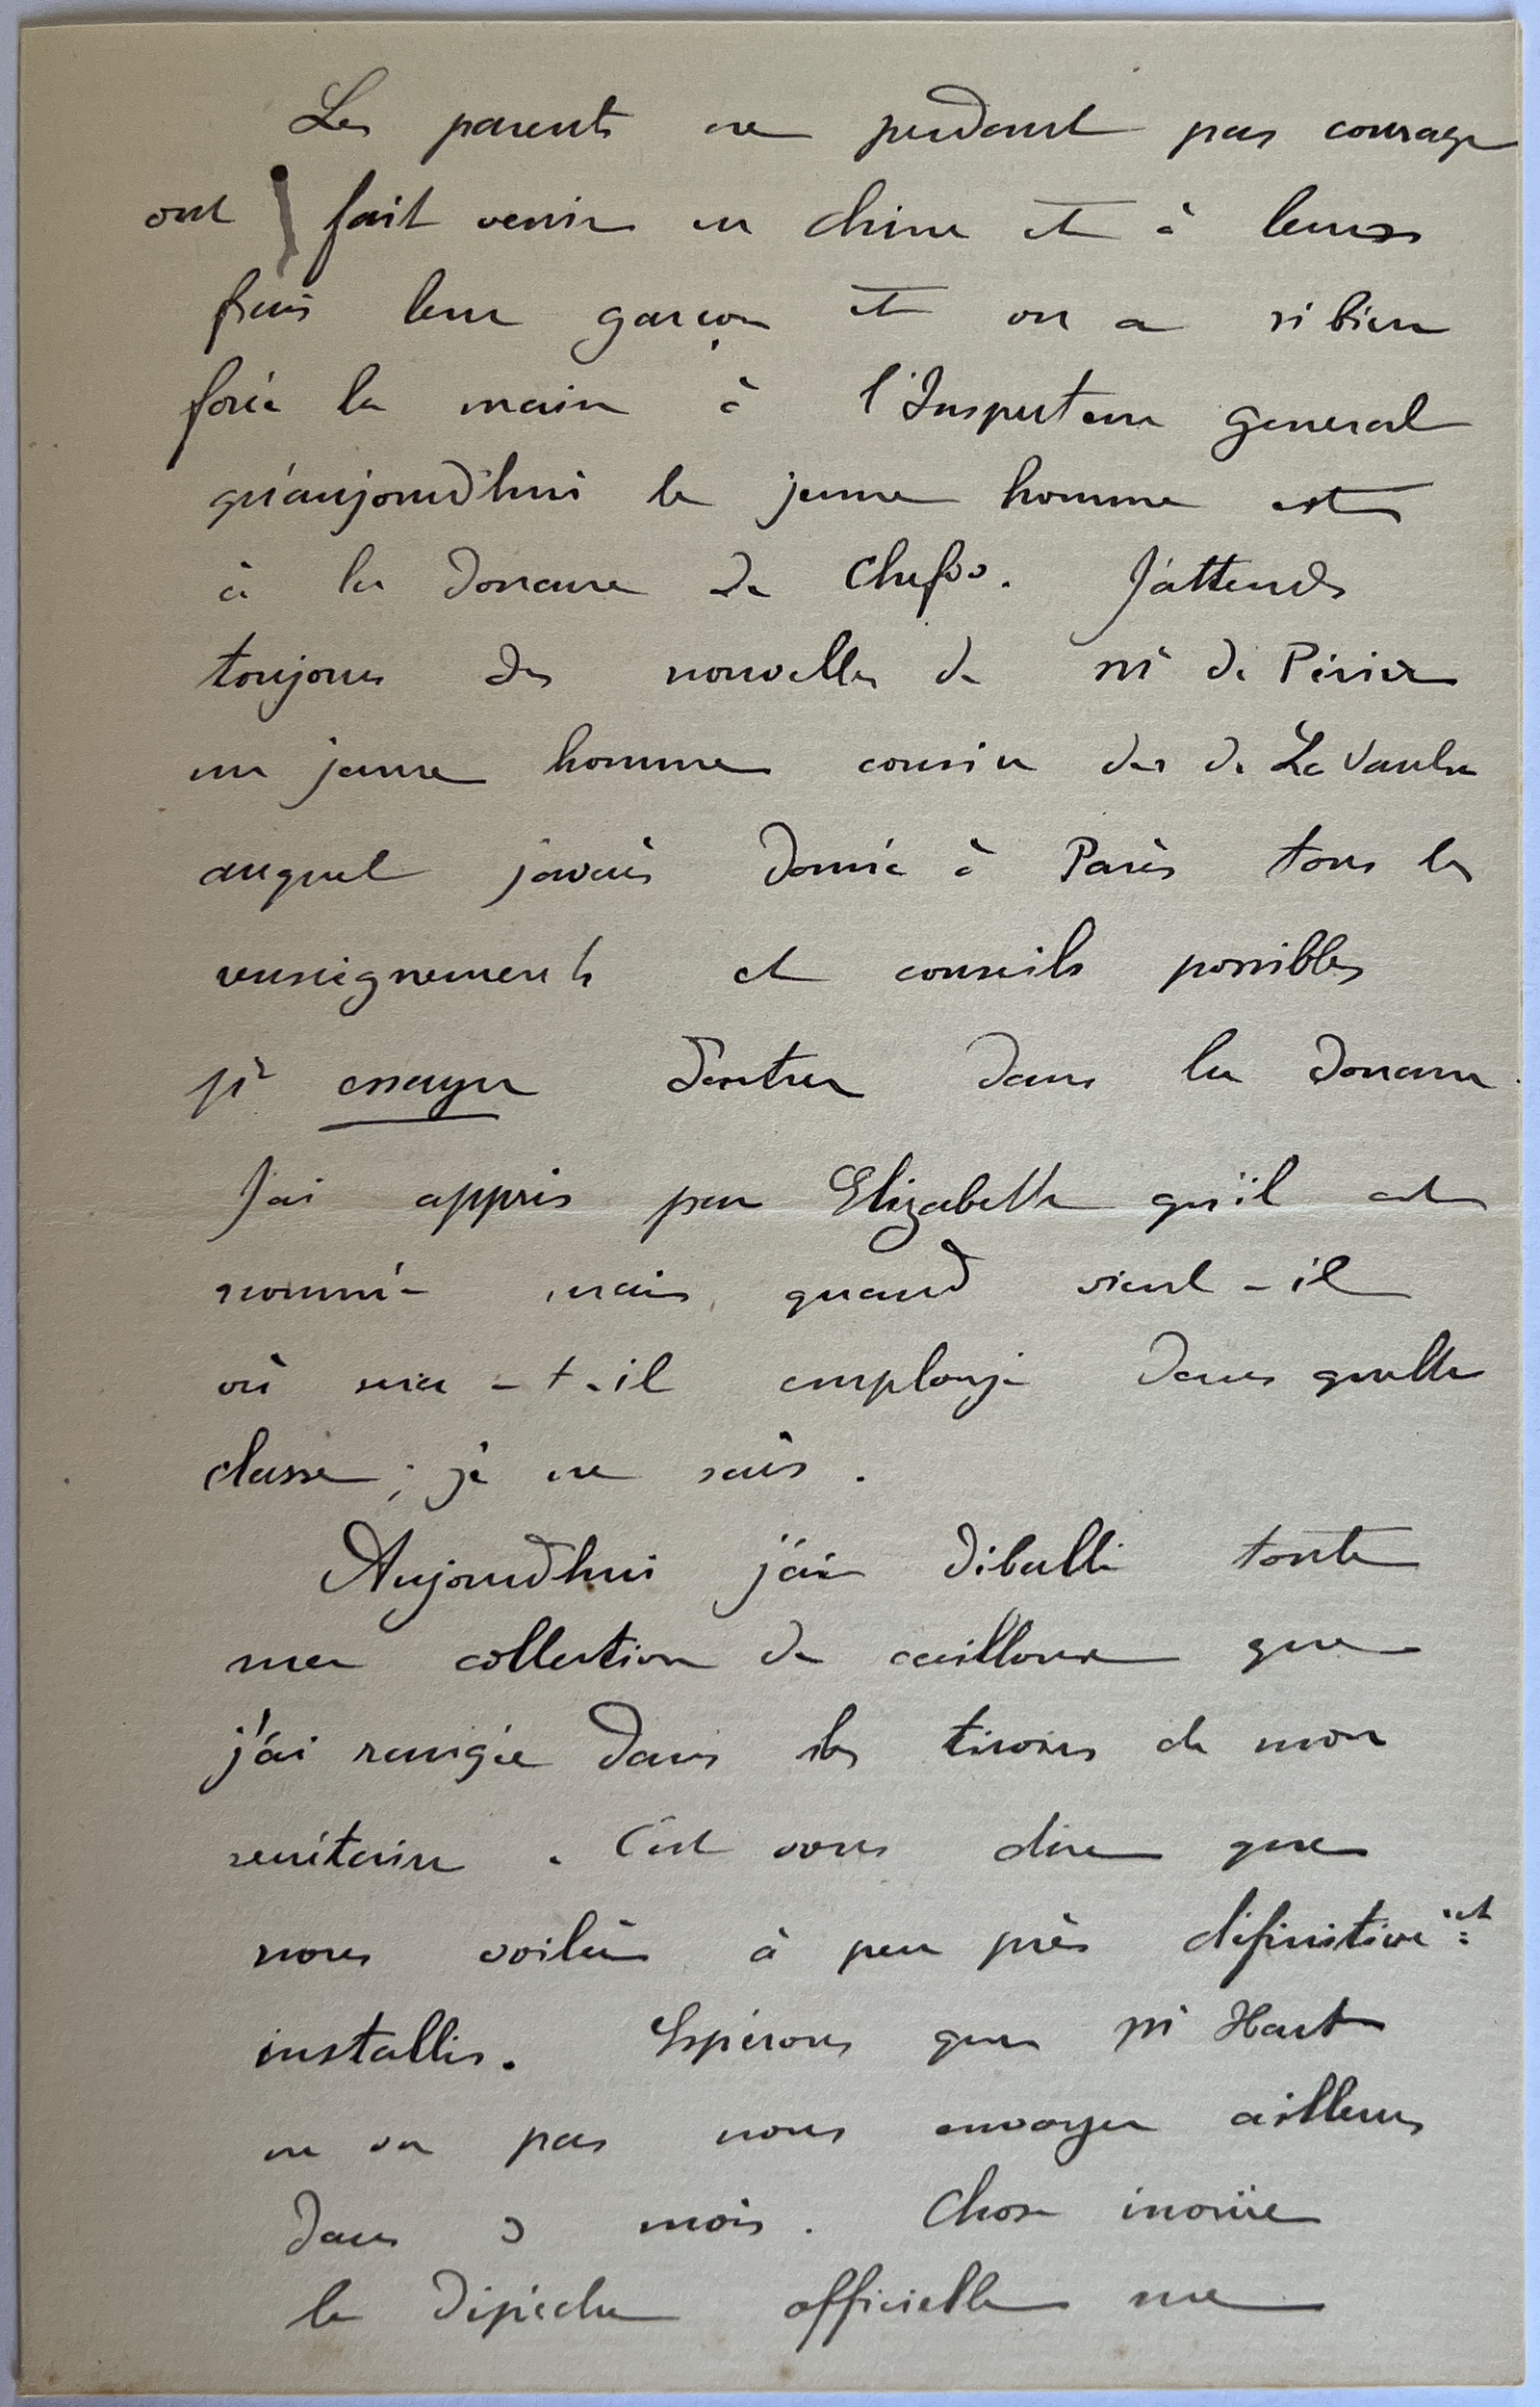 Les parents ne perdant pas courage
ont fait venir en chine et à leurs
frais leur garçon et on a si bien
forcé la main à l'Inspecteur general
qu'aujourd'hui le jeune homme est
à la douane de Chefoo. J'attends
toujours des nouvelles de Mr de Périer
un jeune homme cousin des de La Vaulx
auquel j'avais donné à Paris tous les
renseignements et conseils possibles
pr essayer d'entrer dans la douane.
J'ai appris par Elizabeth qu'il est
nommé mais quand vient-il
où sera-t-il employé dans quelle
classe ; je ne sais.
Aujourd'hui j'ai déballé toute
ma collection de cailloux que
j'ai rangée dans les tiroirs de mon
secrétaire. C'est vous dire que
nous voilà à peu près définitivemt
installés. Espérons que Mr Hart
ne va pas nous envoyer ailleurs
dans 3 mois. Chose inouïe
la dépêche officielle me